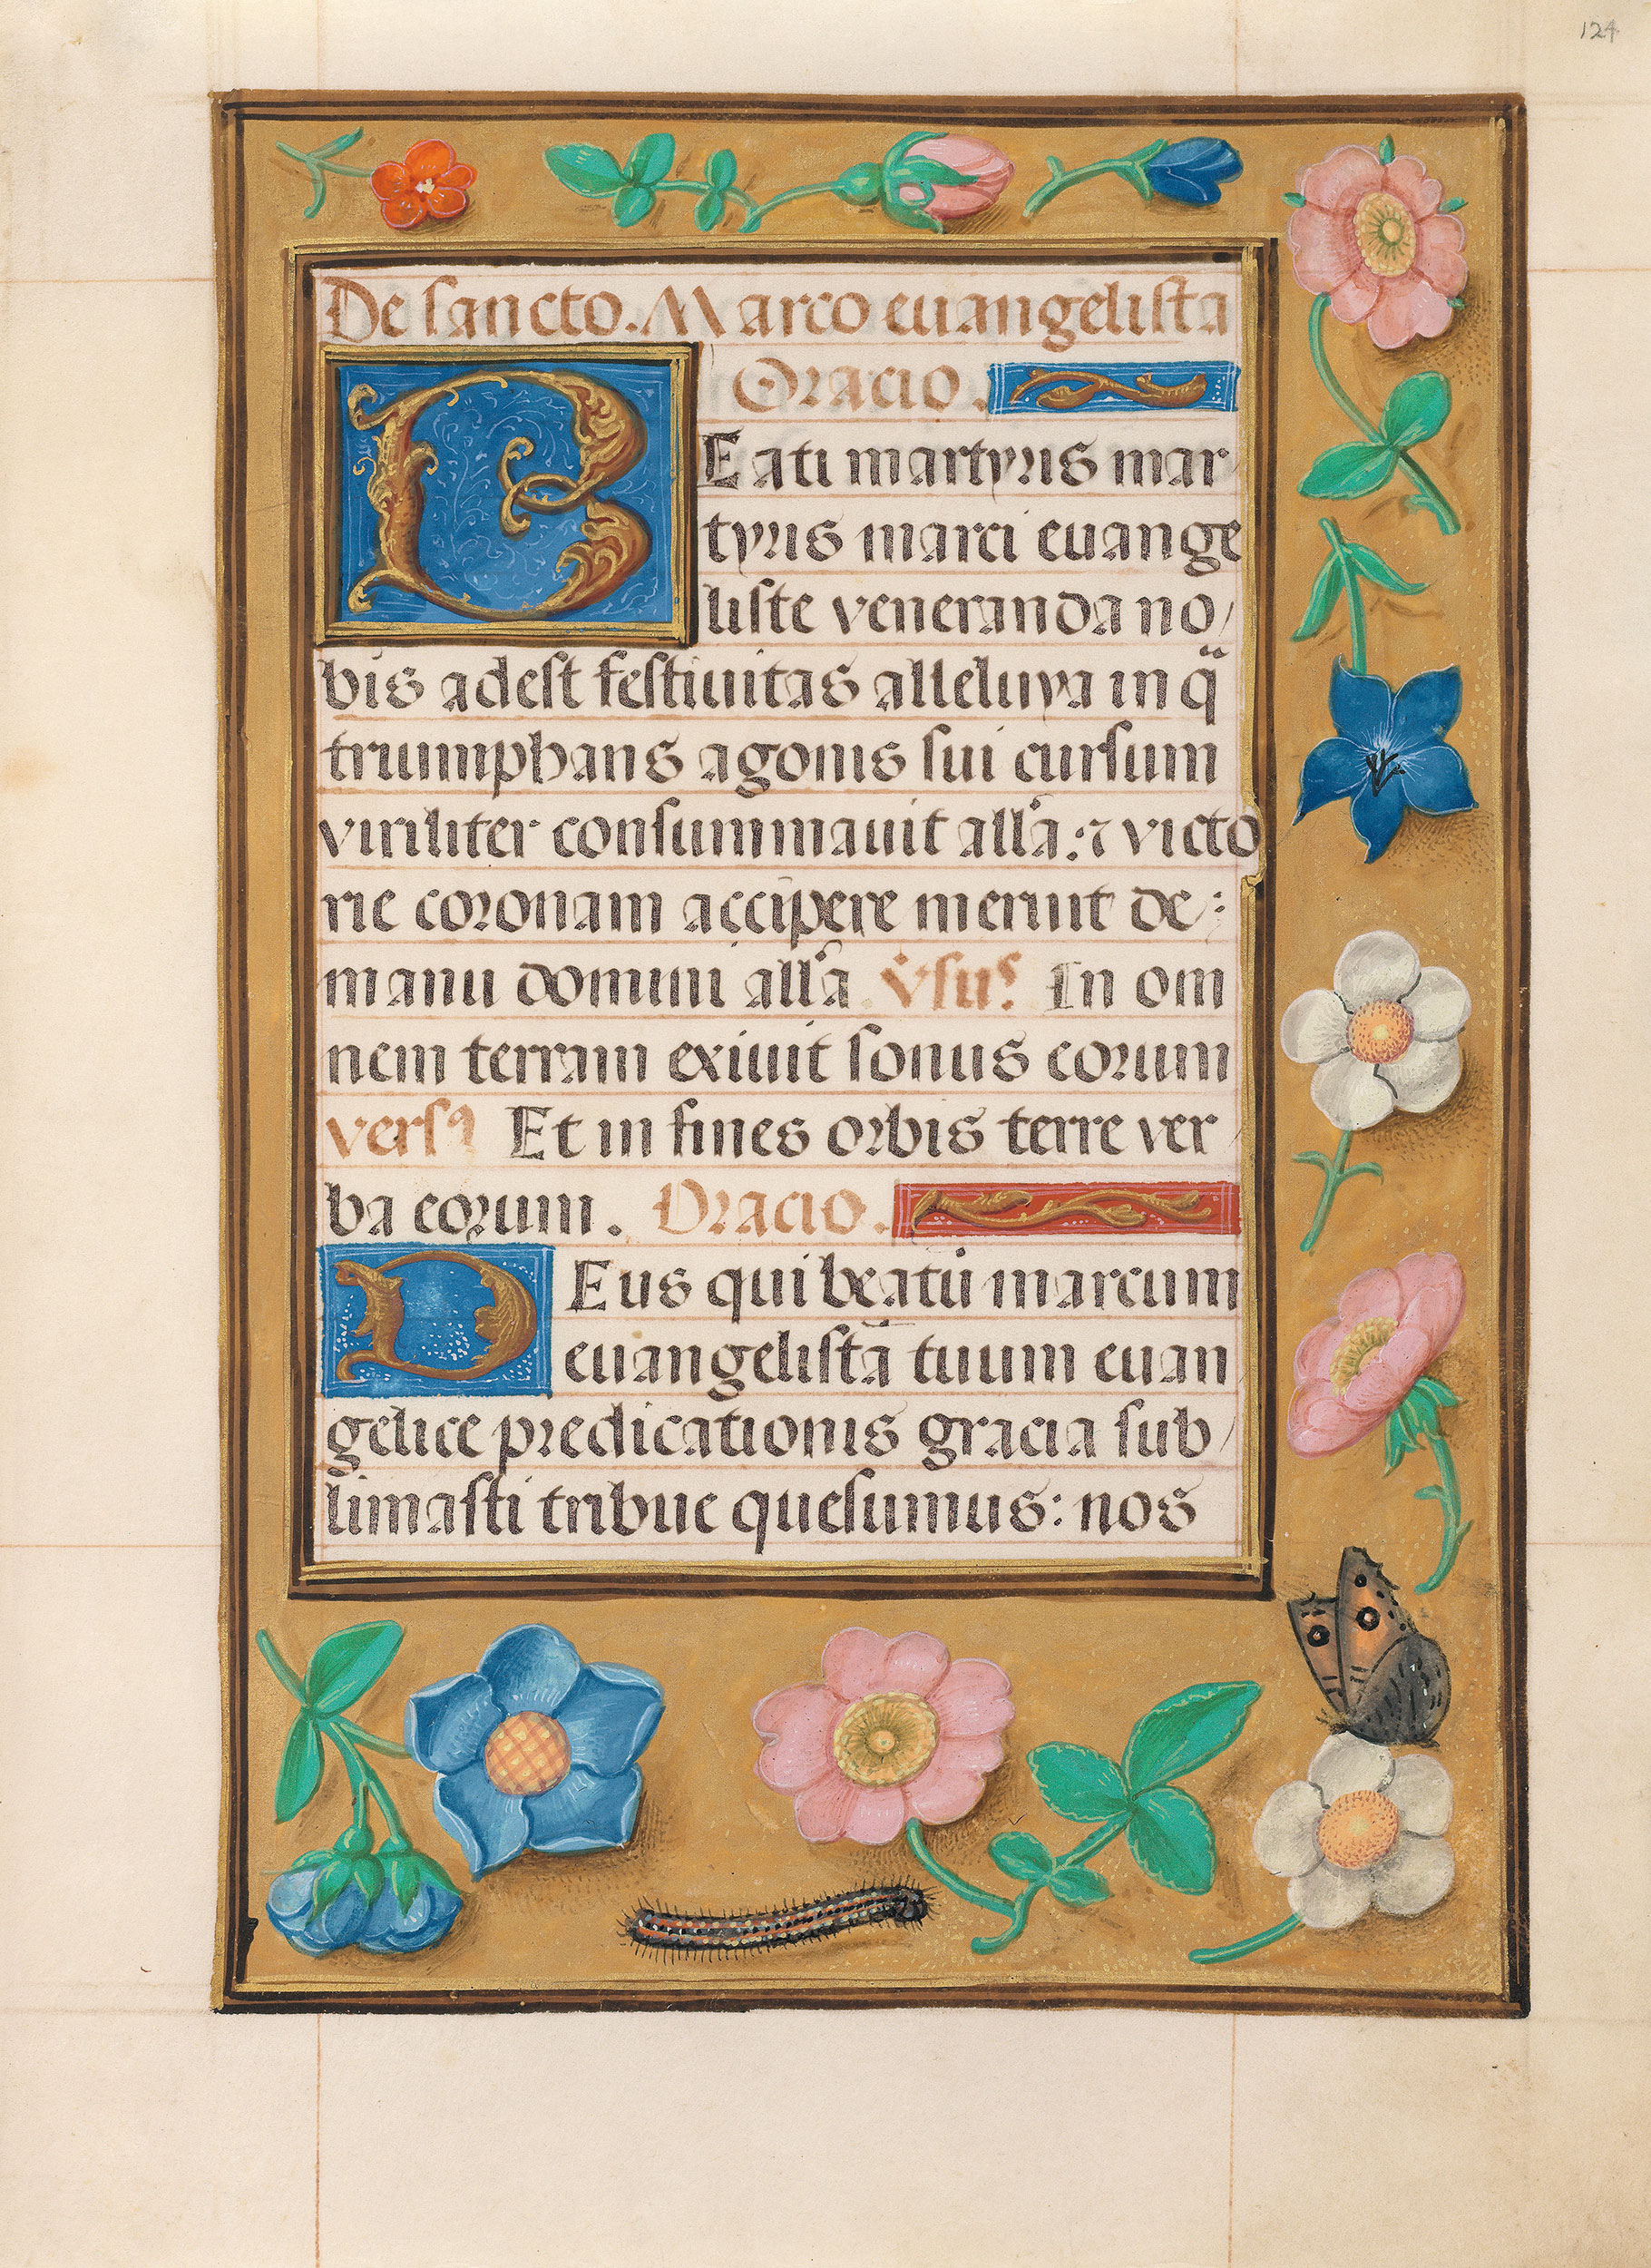 124
De sancto. Marco euangelista
Oracio.
BEati martyris mar
tyris marci euange
liste veneranda no/
bis adest festiuitas alleluya in qͣ
triumphans agonis sui cursum
viriliter consummauit all'a. ⁊ victo
rie coronam accipere meruit de:
manu domini all'a Vsu⁹. In om
nem terram exiuit sonus eorum
versꝰ Et in fines orbis terre ver/
ba eorum. Oracio.
DEus qui beatū marcum
euangelistā tuum euan
gelice predicationis gracia sub/
limasti tribue quesumus: nos